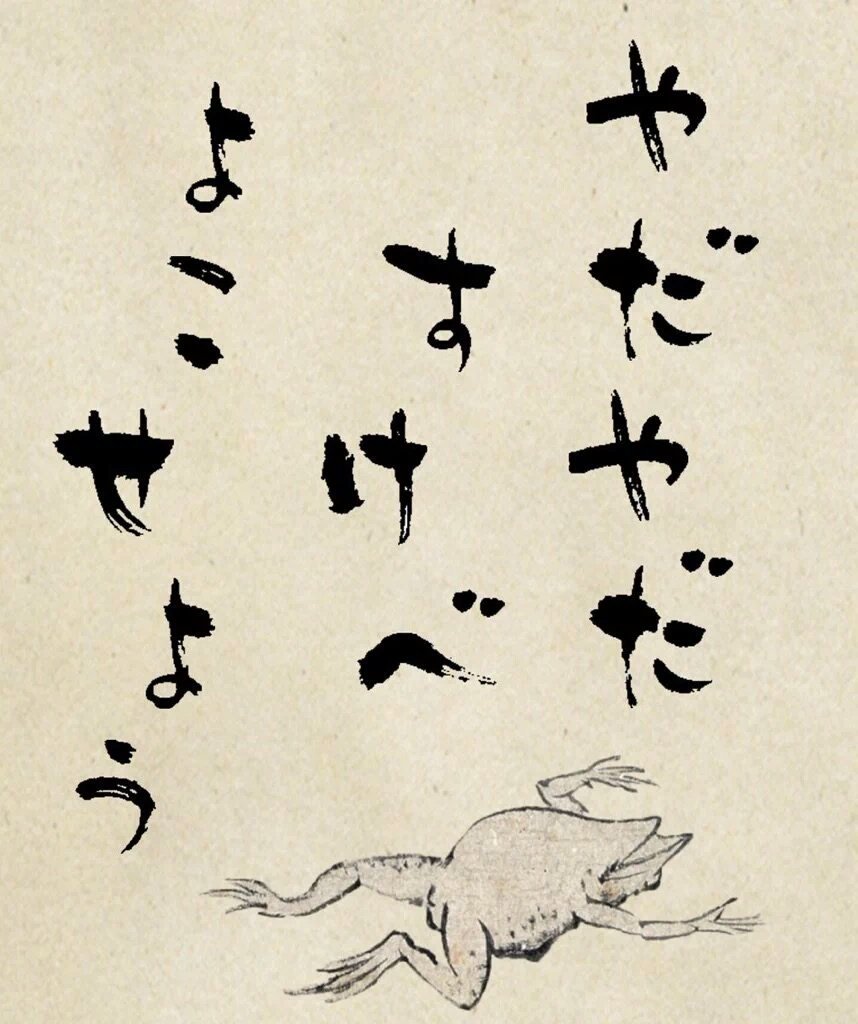 やだやだ
すけべ
よこせよう